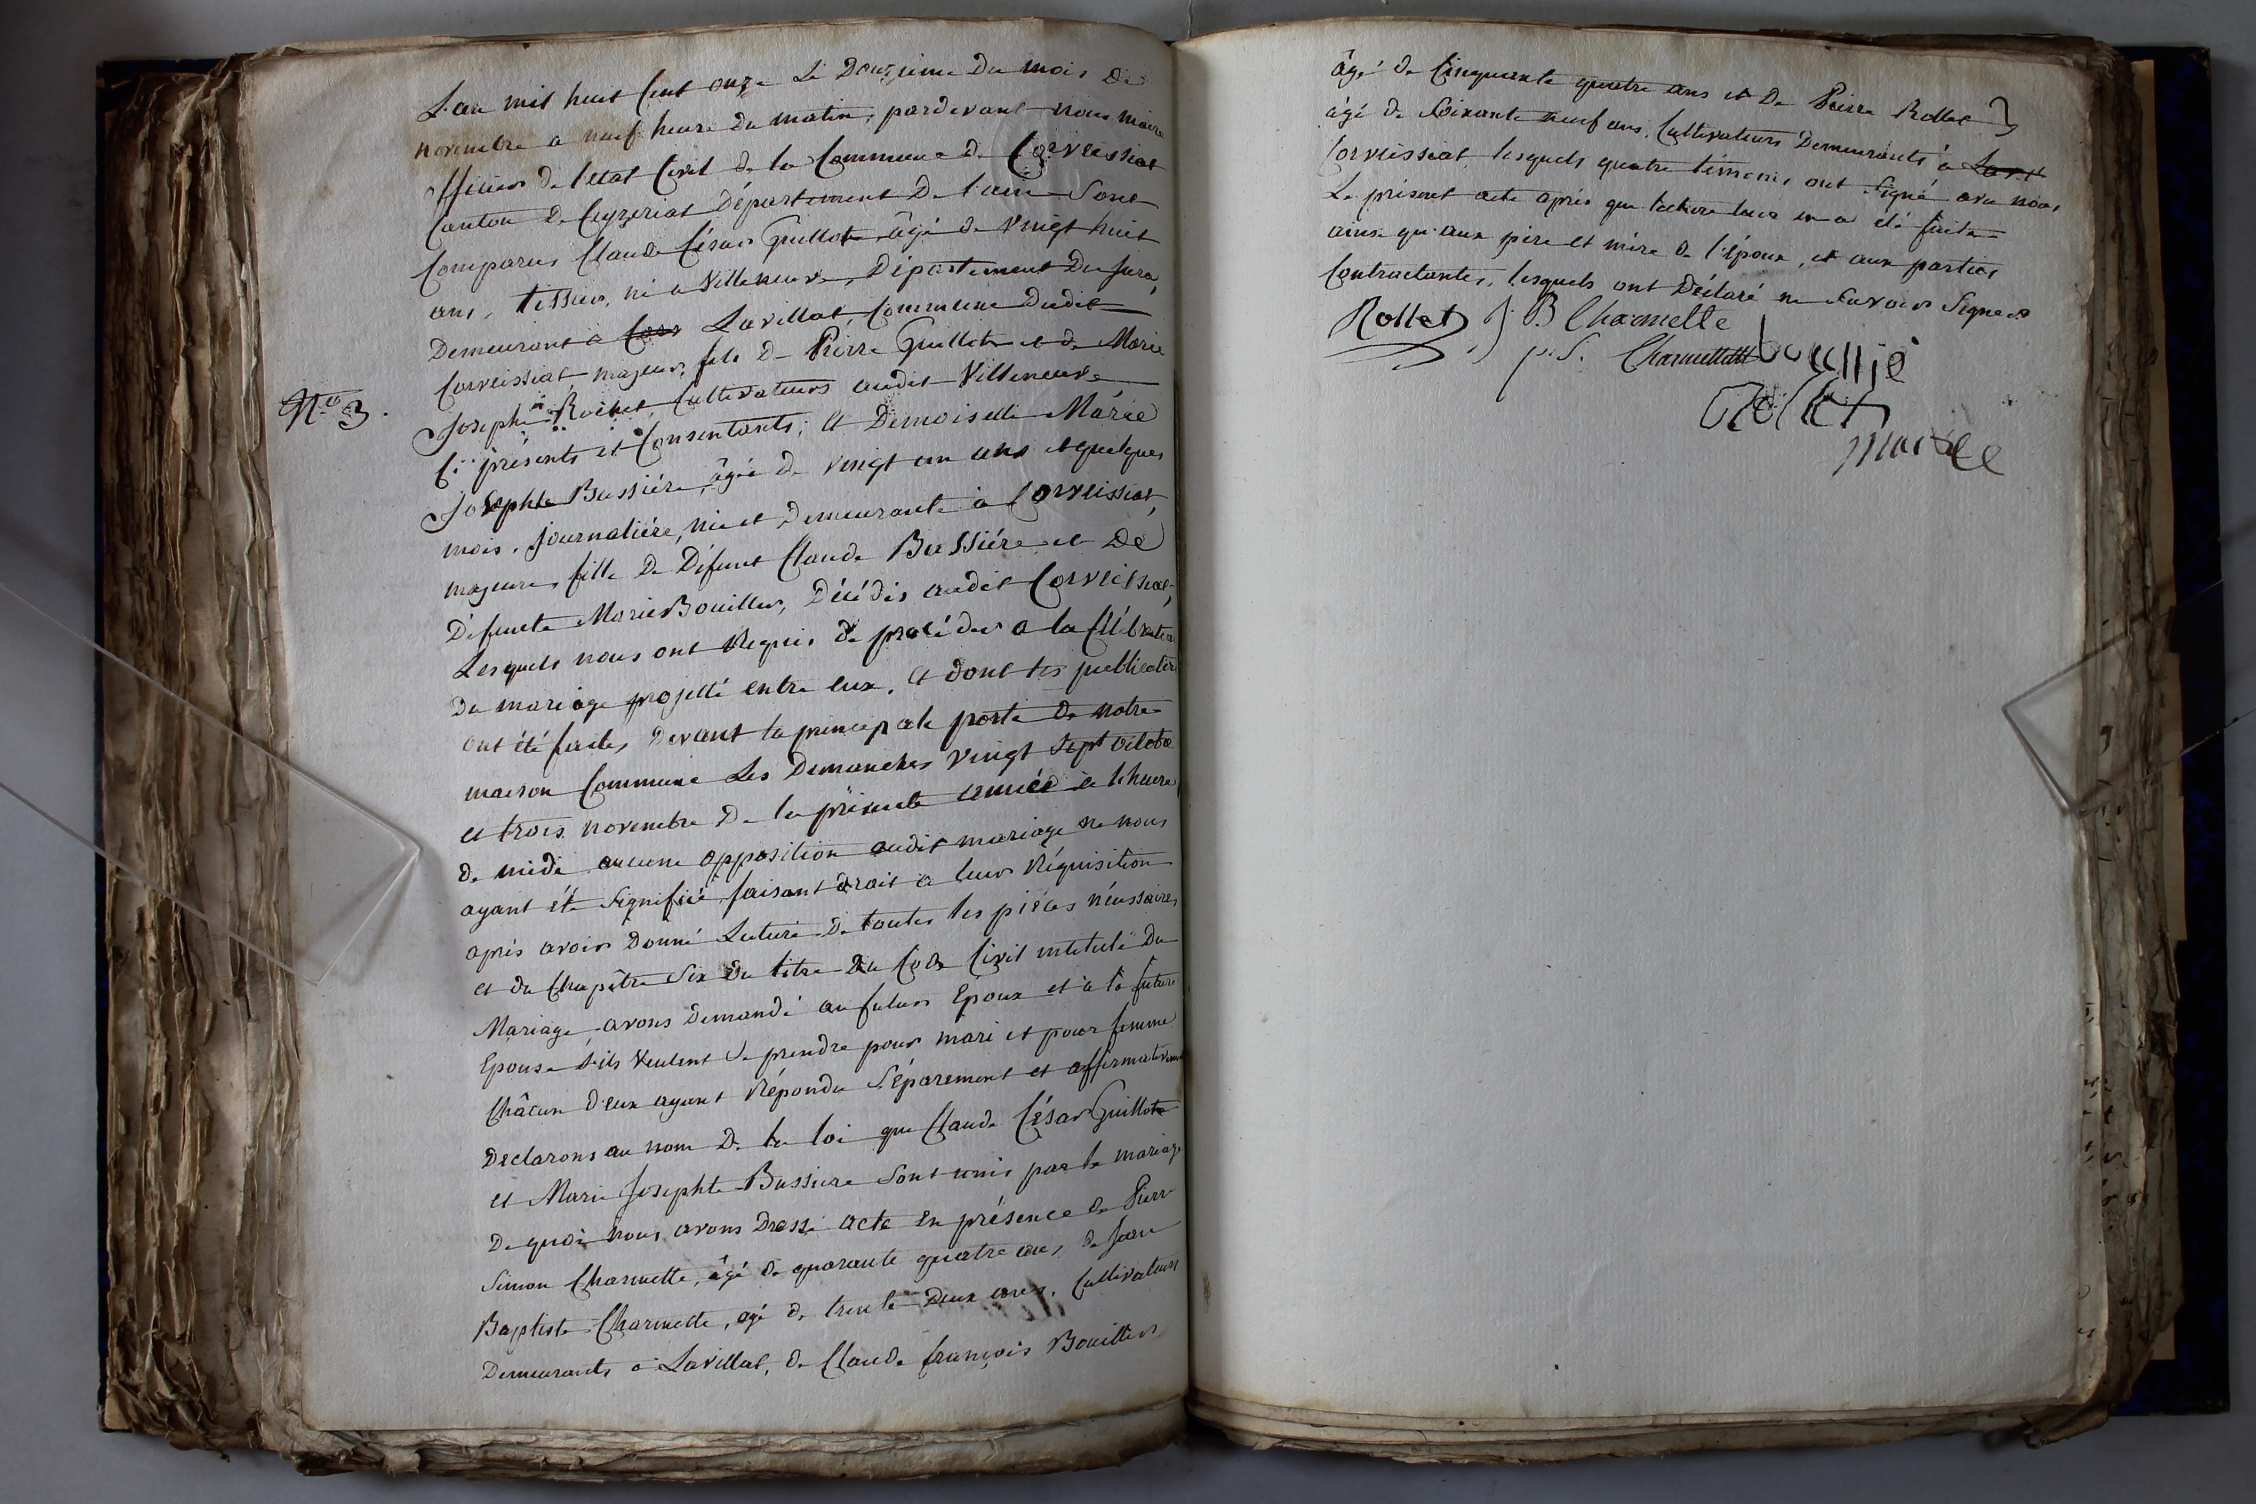 L'an mil huit Cent onze Le Douzieme Du mois De
novembre a neuf heure du matin, pardevant nous maire
officier de l'etat Civil de la Commune de Corveissiat
Canton de Ceyzeriat Département De l'ain Sont
Comparus Claude César Guillot âgé de Vingt huit
ans, tissier, né a Villeneuve, Département Du Jura,
Demeurant a Lavillat, Commune Dudit
Corveissiat majeur, fils De Pierre Guillot et de Marie
N.º 3.
Josephe Rochet, Cultivateurs audit Villeneuve
Ci présents et Consentants; Et Demoiselle Marie
Josephte Bussiére, âgée de vingt un ans et quelques
mois, journaliére, née et Demeurante à Corveissiat,
majeure, fille De Défunt Claude Bussiére et De
Défuncte Marie Bouillier, Décédés audit Corveissiat,
Lesquels nous ont Requis de procéder a la Célébration
Du mariage projetté entre eux, et dont les publications
ont été faites Devant la principale porte de notre
maison Commune Les Dimanches Vingt Sept octobre
et trois novembre De la présente année à l'heure
de midi aucune opposition audit mariage ne nous
ayant été Signifiée, faisant droit a leur Réquisition
après avoir Donné Lecture De toutes les piéces nécessaires
et du Chapître Six du titre Du Code Civil intitulé Du
Mariage, avons Demandé au futur Epoux et à la future
Epouse s'ils veulent se prendre pour mari et pour femme
Châcun d'eux ayant Répondu Séparement et affirmativement
Declarons au nom De la loi que Claude César Guillot
et Marie Josephte Bussiere Sont unis par le mariage
De quoi nous avons Dressé acte en présence de Pierre
Simon Charmette, âgé de quarante quatre ans, de Jean
Baptiste Charmette, agé de trente Deux ans, Cultivateurs
Demeurants à Lavillat, de Claude françois Bouillier
âgé de Cinquante quatre ans et De Pierre Rollet
âgé de Soixante neuf ans, Cultivateurs Demeurants à
Corveissiat lesquels quatre témoins ont Signé avec nous
Le présent acte après que lecture leur en a été faite
ainsi qu'aux pére et mére de l'époux, et aux parties
Contractantes, lesquels ont Déclaré ne Savoir Signer
Rollet J. B. Charmette
p. S. Charmette bouillié
Rollet
maire